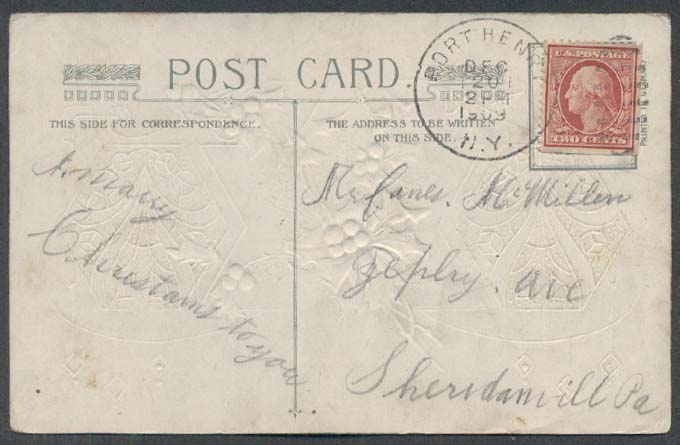 POST CARD.
THIS SIDE FOR CORRESPONDENCE.
THE ADDRESS TO BE WRITTEN
ON THIS SIDE.
PORT HENR
DEC
20
2 PM
1909
N.Y.
U.S. POSTAGE
TWO CENTS
PRINTED IN GERMANY
A. mary
Christams to you
Mr McMillen
Sheridanvill Pa